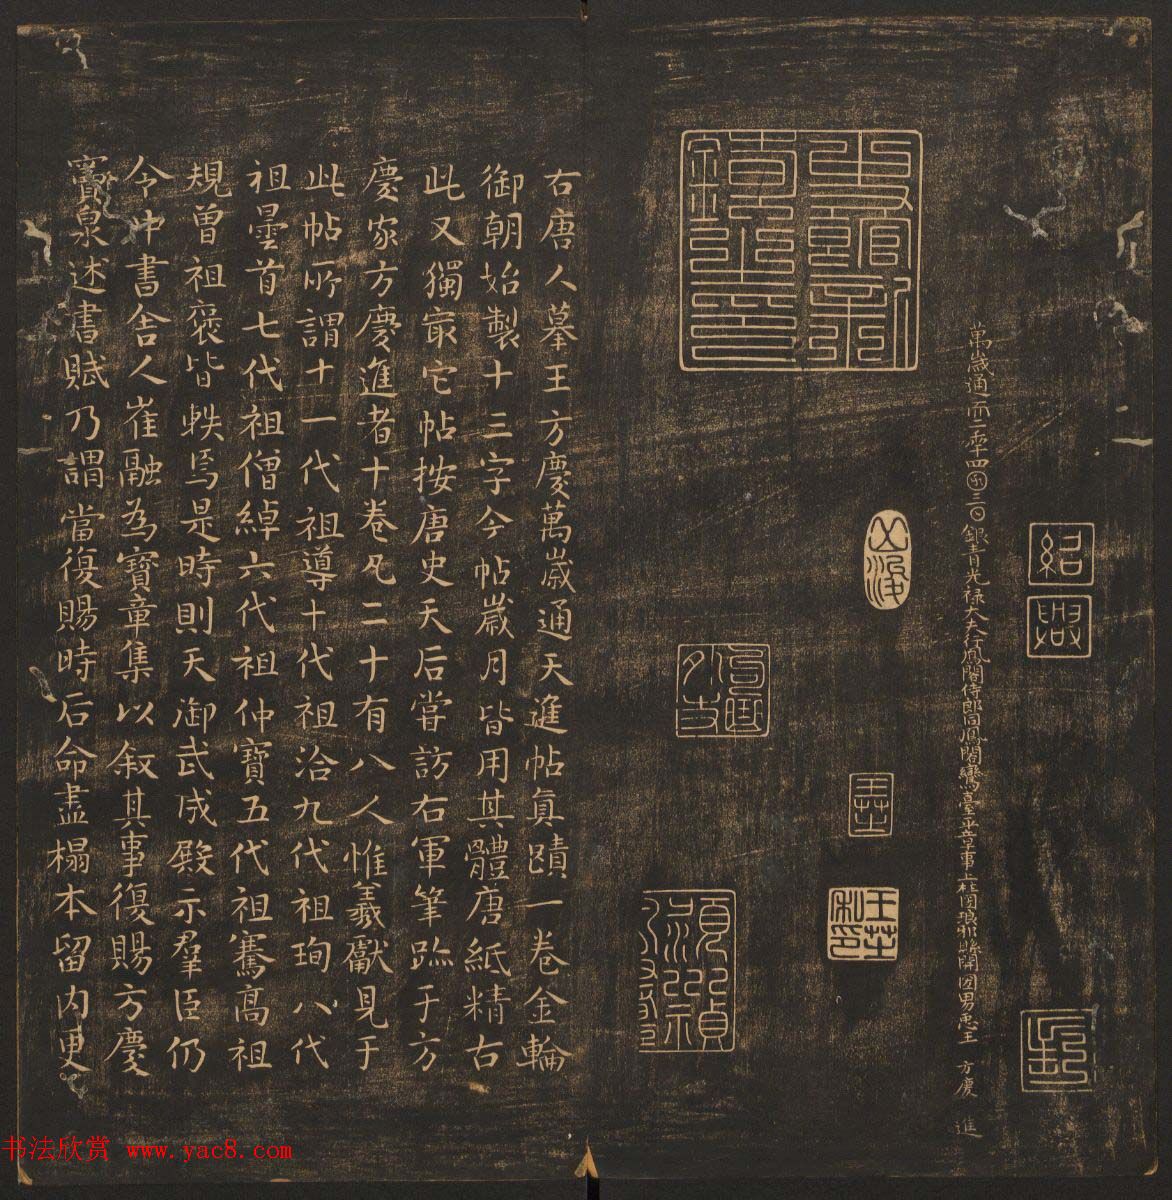 萬歲通𠀑二年四𠥱三〇銀青光祿大夫行鳳閣侍郎同鳳閣鸞臺平章事上柱國琅耶縣開國男臣王方慶進
史館新鑄之印
紹興
右唐人摹王方慶萬歲通天進帖真蹟一卷金輪
御朝始製十三字今帖歲月皆用其體唐紙精古
此又獨最它帖按唐史天后嘗訪右軍筆跡于方
慶家方慶進者十卷凡二十有八人惟羲獻見于
此帖所謂十一代祖導十代祖洽九代祖珣八代
祖曇首七代祖僧綽六代祖仲寶五代祖騫高祖
規曾祖褒皆軼焉是時則天御武成殿示羣臣仍
令中書舍人崔融為寶章集以叙其事復賜方慶
竇泉述書賦乃謂當復賜時后命盡榻本留內更
书法欣赏 www.yac8.com